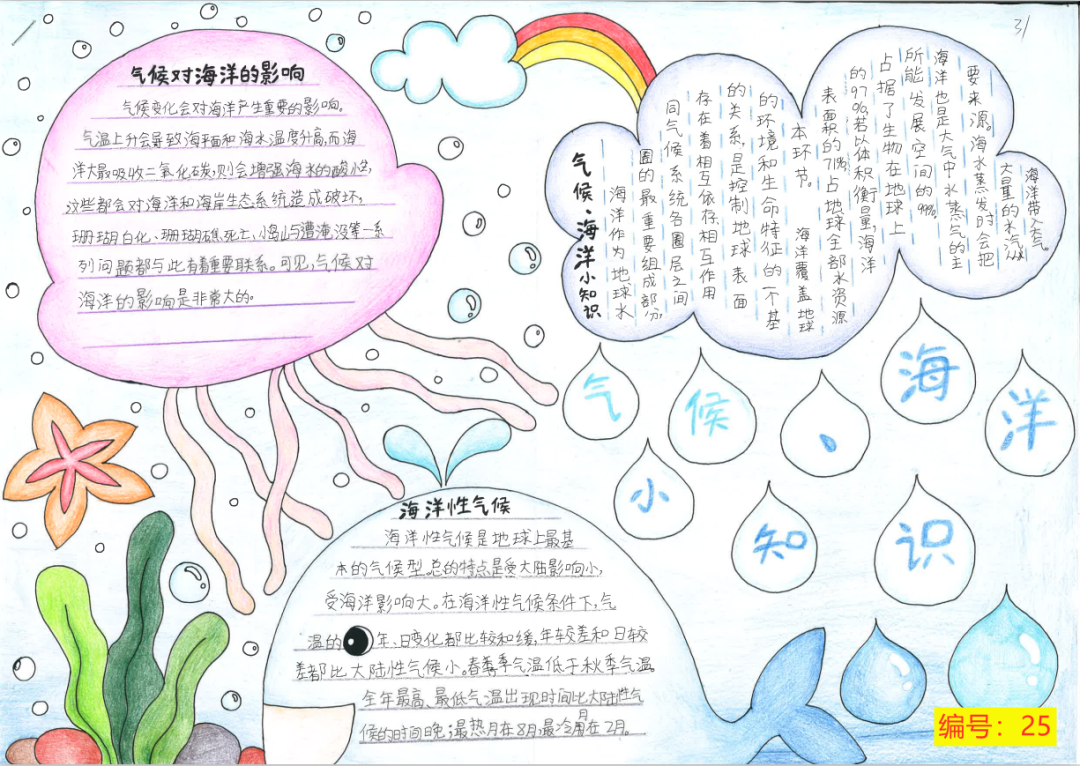 31
气候对海洋的影响
气候变化会对海洋产生重要的影响。
气温上升会导致海平面和海水温度升高,而海
洋大量吸收二氧化碳,则会增强海水的酸性,
这些都会对海洋和海岸生态系统造成破坏,
珊瑚白化、珊瑚礁死亡、小岛屿遭淹没等一系
列问题都与此有着重要联系。可见,气候对
海洋的影响是非常大的。
气候、海洋小知识
海洋作为地球水
圈的最重要组成部分,
同气候系统各圈层之间
存在着相互依存相互作用
的关系,是控制地球表面
的环境和生命特征的一个基
本环节。 海洋覆盖地球
表面积的71%占地球全部水资源
的97%若以体积衡量,海洋
占据了生物在地球上
所能发展空间的99%。
海洋也是大气中水蒸气的主
要来源。海水蒸发时会把
大量的水汽从
海洋带入大气。
气候、海洋
小知识
海洋性气候
海洋性气候是地球上最基
本的气候型.总的特点是受大陆影响小,
受海洋影响大。在海洋性气候条件下,气
温的年、日变化都比较和缓,年较差和日较
差都比大陆性气候小。春季气温低于秋季气温。
全年最高、最低气温出现时间比大陆性气
候的时间晚;最热月在8月,最冷月在2月。
编号：25